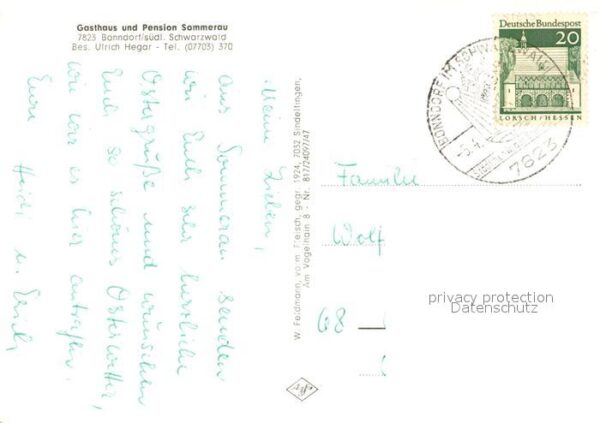 Gasthaus und Pension Sommerau
7823 Bonndorf/südl. Schwarzwald
Bes. Ulrich Hegar - Tel. (07703) 370
Meine Lieben,
aus Sommerau senden
wir Euch sehr herzliche
Ostergrüße und wünschen
Euch so schönes Osterwetter,
wie wir es hier antrafen.
Eure Heidi u. Erich
W. Feldmann, vorm. Fleisch, gegr. 1924, 7032 Sindelfingen,
Am Vogelhain 8 - Nr. 817/24097/47
Deutsche Bundespost
20
LORSCH/HESSEN
BONNDORF IM SCHWARZWALD
-3.4.
7823
Familie
Wolf
68
privacy protection
Datenschutz